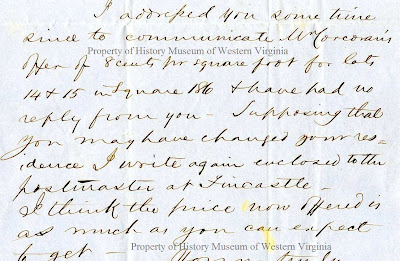 I addressed you some time
since to communicate Mr Corcoran's
Property of History Museum of Western Virginia
offer of 8 cents pr square foot for lots
14 & 15 in Square 186 & have had no
reply from you - Supposing that
you may have changed your res-
idence I write again enclosed to the
postmaster at Fincastle -
I think the price now offered is
as much as you can expect
Property of History Museum of Western Virginia
to get - Yours truly